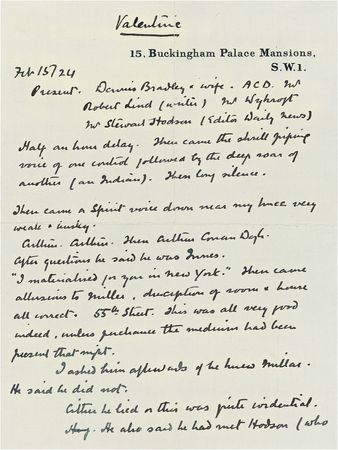 Valentine
15. Buckingham Palace Mansions,
S.W.1.
Feb 15/24
Present. Dennis Bradley & wife. A.C.D. Mr
Robert Lind (writer) Mr Wykroft
Mr Stewart Hodson (Editor Daily News)
Half an hour delay. Then came the shrill piping
voice of one control followed by the deep roar of
another (an Indian). Then long silence.
Then came a Spirit voice down near my knee very
weak & husky.
Arthur. Arthur. Then Arthur Conan Doyle.
After questions he said he was Innes.
"I materialised for you in New York." Then came
allusions to Miller, description of room & house
all correct. 55th Street. This was all very good
indeed, unless perchance the medium had been
present that night.
I asked him afterwards if he knew Miller.
He said he did not.
Either he lied or this was quite evidential.
He also said he had met Hodson (who